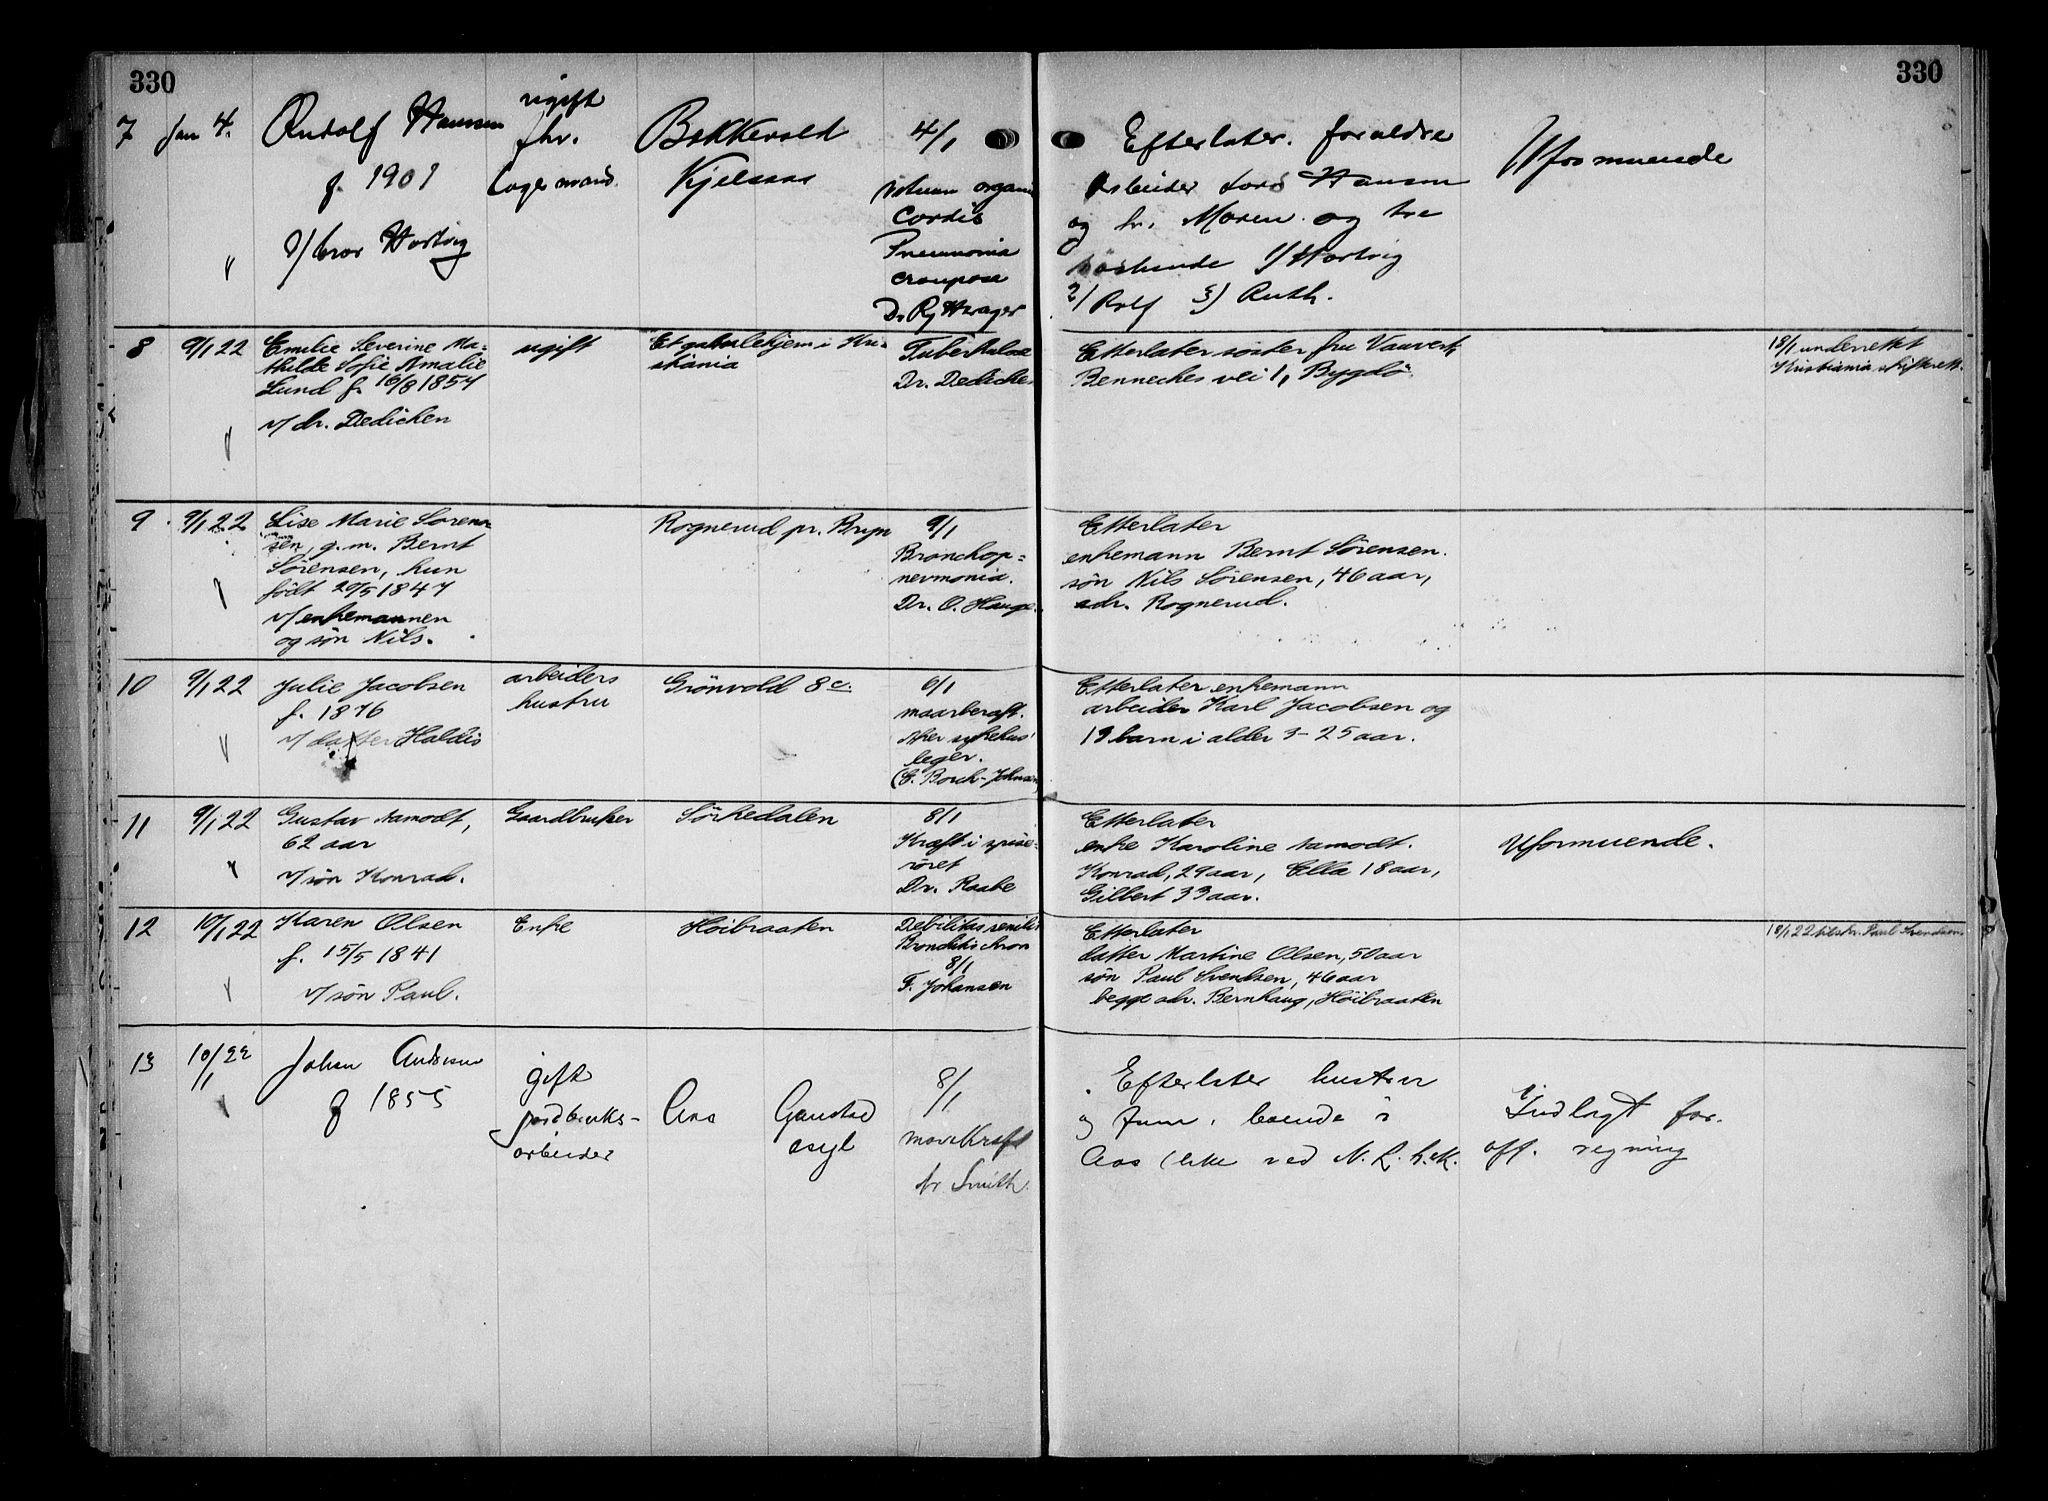 330
330
7 Jan 4. Rudolf Hansen ugift
fhv.
lagermand.
f. 1901
v/ bror Hartvig
Bakkevold
Kjelsaas
4/1
Vitium organ
Cordis
Pneumonia
crouposa
Dr
Efterlater. forældre
Arbeider Hansen
og h. Maren. og tre
søskende 1/ Hartvig
2/ Rolf 3/ Ruth.
Uformuende
8 9/1 22 Emilie Severine Ma-
thilde Sofie Amalie
Lund f. 16/8 1857
v/ dr. Dedichen
ugift
Et gamlehjem i Kri-
stiania
Tuberkulose
Dr. Dedichen
Etterlater søster fru
Benneches vei 1, Bygdö
18/1 underrettet
Kristiania skifterett.
9 9/1 22 Lise Marie Soren-
sen, g.m. Bernt
Sörensen, hun
födt 29/5 1847
v/ enkemannen
og sön Nils.
Rognerud pr. Bryn
9/1
Bronchop=
nevmonia.
Dr. O. Hauge.
Etterlater
enkemann Bernt Sörensen.
sön Nils Sörensen, 46 aar,
adr. Rognerud.
10 9/1 22 Julie Jacobsen
f. 1876
v/ datter Haldis
arbeiders
hustru
Grönvold 8 c.
6/1
Aker sykehus'
leger.
(C. Borch-Johnsen)
Etterlater enkemann
arbeider Karl Jacobsen og
13 barn i alder 3-25 aar.
11 9/1 22 Gustav Aamodt,
62 aar
v/ sön Konrad.
Gaardbruker
Sörkedalen
8/1
Kræft i spise-
röret
Dr. Raabe
Etterlater
enke Karoline Aamodt.
Konrad, 29 aar, Ella 18 aar,
Gilbert 33 aar.
Uformuende.
12 10/1 22 Karen Olsen
f. 15/5 1841
v/ sön Paul.
Enke
Höibraaten
Debilitas senilis
Bronchitis chron
8/1
F. Johansen
Etterlater
datter Martine Olsen, 50 aar
sön Paul Svendsen, 46 aar
begge adr. Bernhaug, Höibraaten
18/1 22 tilskr. Paul Svendsen
13 10/1 22 Johan Andersen
f 1855
gift
jordbruks-
arbeider
Aas
Gaustad
asyl
8/1
mavekræft
dr Smith.
Efterlater hustru
og boende i
Aas (like ved N. L. h.sk.
Indlagt for.
off. regning